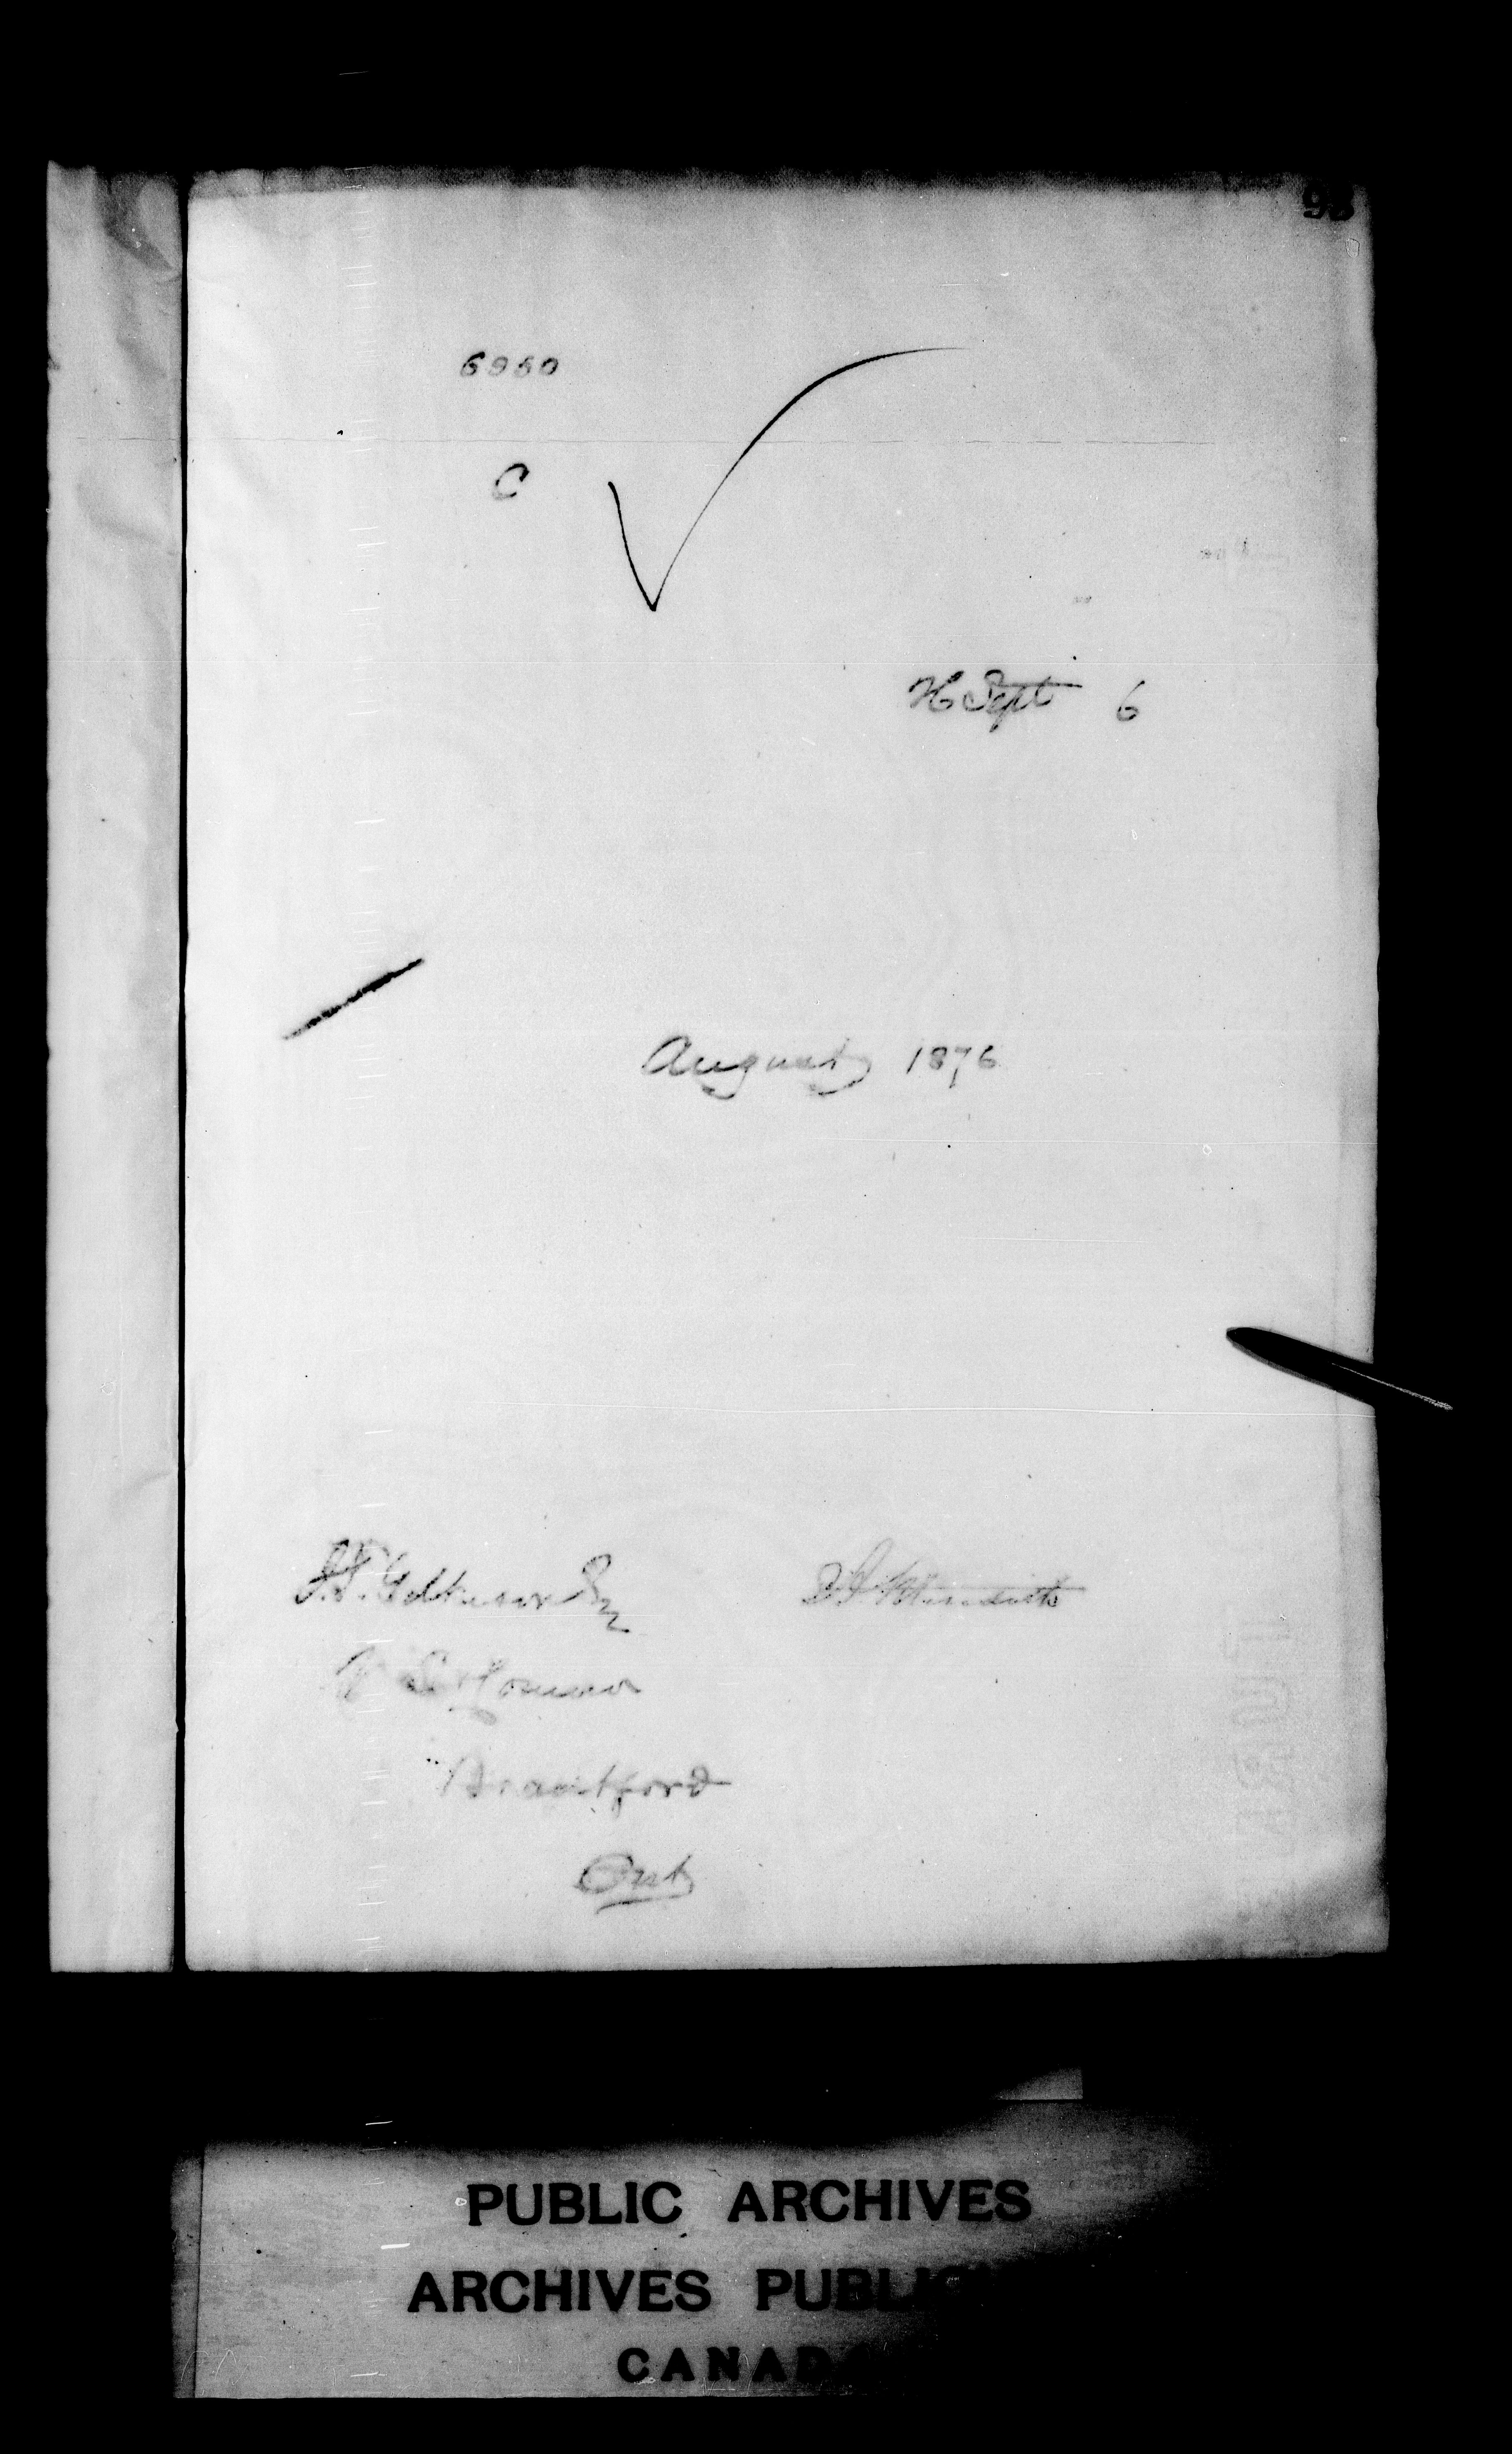 6960
C
H Sept 6
August 1876
J.T. Gilkison Esq
Brantford
Ont
PUBLIC ARCHIVES
ARCHIVES PUBLI
CANADA